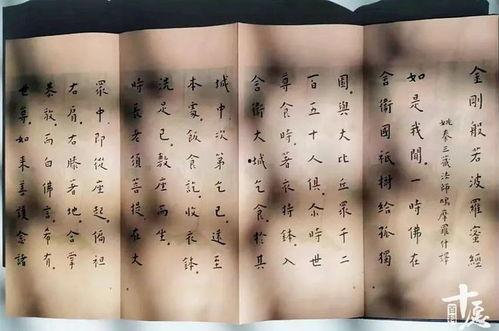 金剛般若波羅蜜經
姚秦三藏法師鳩摩羅什譯
如是我聞。一時佛在
舍衛國祇樹給孤獨
園。與大比丘眾千二
百五十人俱。尒時世
尊食時。著衣持鉢。入
舍衛大城乞食。於其
城中次第乞已。還至
本處。飯食訖。收衣鉢。
洗足已。敷座而坐。
時長老須菩提在大
眾中即從座起。偏袒
右肩。右膝著地。合掌
恭敬。而白佛言。希有
世尊。如來善護念諸
百科